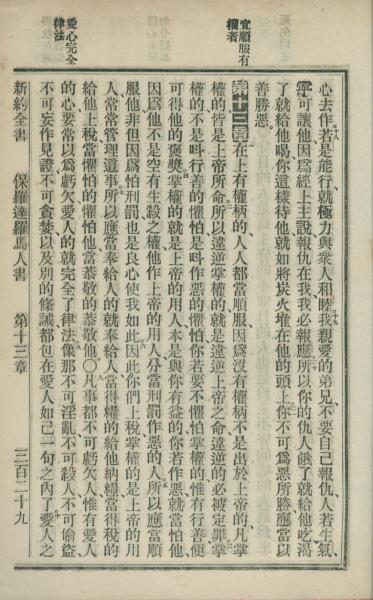 宜順服有
權者
愛心完全
律法
心去作若是能行就極力與衆人和睦我親愛的弟兄不要自己報仇人若生氣
寧可讓他因爲經上主說報仇在我我必報應所以你的仇人餓了就給他吃渴
了就給他喝你這樣待他就如將炭火堆在他的頭上你不可爲惡所勝應當以
善勝惡
第十三章在上有權柄的人人都當順服因爲沒有權柄不是出於上帝的凡掌
權的皆是上帝所命所以違逆掌權的就是違逆上帝之命違逆的必被定罪掌
權的不是叫行善的懼怕是叫作惡的懼怕你若要不懼怕掌權的惟有行善便
可得他的褒奬掌權的就是上帝的用人本是與你有益的你若作惡就當怕他
因爲他不是空有生殺之權他作上帝的用人分當刑罰作惡的人所以應當順
服他非但因爲怕刑罰也是良心使我如此因此你們上稅掌權的是上帝的用
人常常管理這事所以應當奉給人的就奉給人當得權的給他納糧當得稅的
給他上稅當懼怕的懼怕他當恭敬的恭敬他〇凡事都不可虧欠人惟有愛人
的心要常以爲虧欠愛人的就完全了律法像那不可淫亂不可殺人不可偷盜
不可妄作見證不可貪婪以及別的條誡都包在愛人如己一句之內了愛人之
新約全書 保羅達羅馬人書 第十三章 三百二十九